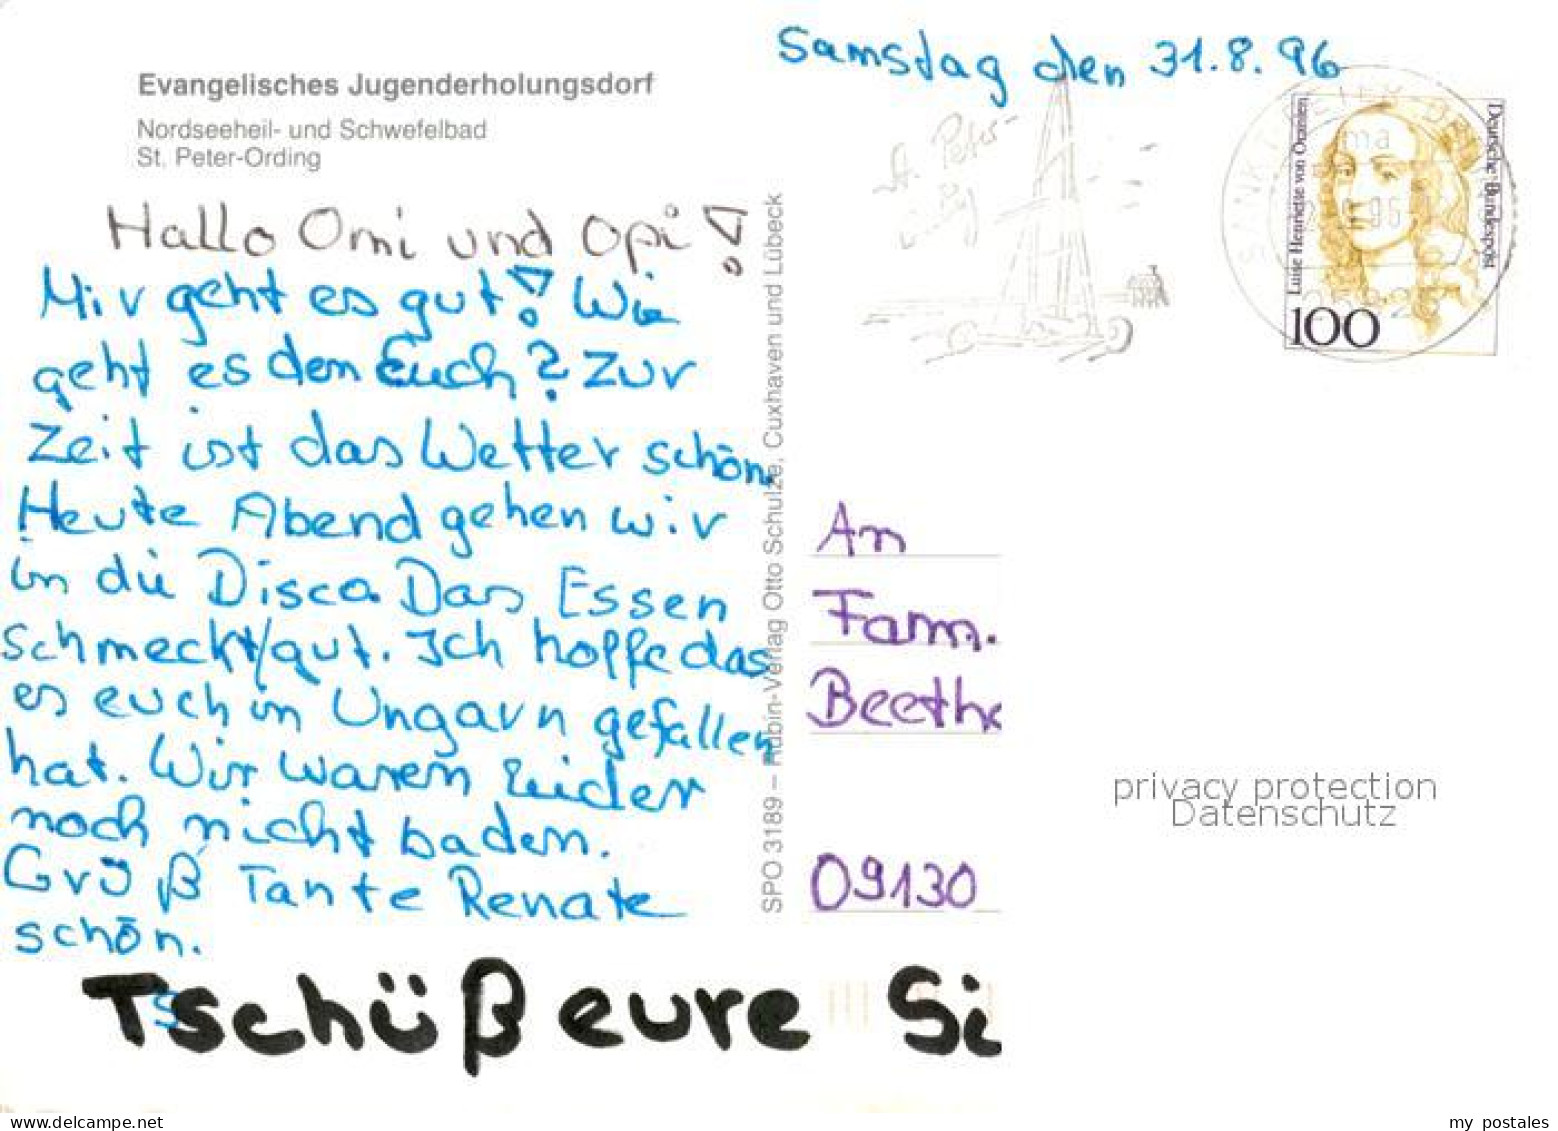 Evangelisches Jugenderholungsdorf
Nordseeheil- und Schwefelbad
St. Peter-Ording
Samstag den 31.8.96
Hallo Omi und Opi!
Mir geht es gut! Wie
geht es den Euch? Zur
Zeit ist das Wetter schön.
Heute Abend gehen wir
in die Disco. Das Essen
schmeckt gut. Ich hoffe das
es euch in Ungarn gefallen
hat. Wir waren leider
noch nicht baden.
Grüß Tante Renate
schön.
Tschüß eure Si
SPO 3189 – Rubin-Verlag Otto Schulze, Cuxhaven und Lübeck
St. Peter-
Luise Henriette von Oranien
Deutsche Bundespost
100
An
Fam.
Beetho
09130
privacy protection
Datenschutz
my postales